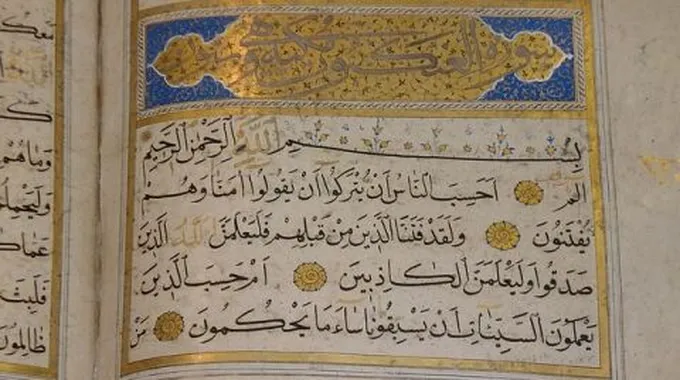 سورة العنكبوت مكية وهى
بِسْمِ اللهِ الرَّحْمٰنِ الرَّحِيمِ
الم اَحَسِبَ النَّاسُ اَنْ يُتْرَكُوا اَنْ يَقُولُوا اٰمَنَّا وَهُمْ
يُفْتَنُونَ وَلَقَدْ فَتَنَّا الَّذِينَ مِنْ قَبْلِهِمْ فَلَيَعْلَمَنَّ اللهُ الَّذِينَ
صَدَقُوا وَلَيَعْلَمَنَّ الْكَاذِبِينَ اَمْ حَسِبَ الَّذِينَ
يَعْمَلُونَ السَّيِّئَاتِ اَنْ يَسْبِقُونَا سَاءَ مَا يَحْكُمُونَ مَنْ
وَمَاهُمْ
ظَالِمُونَ